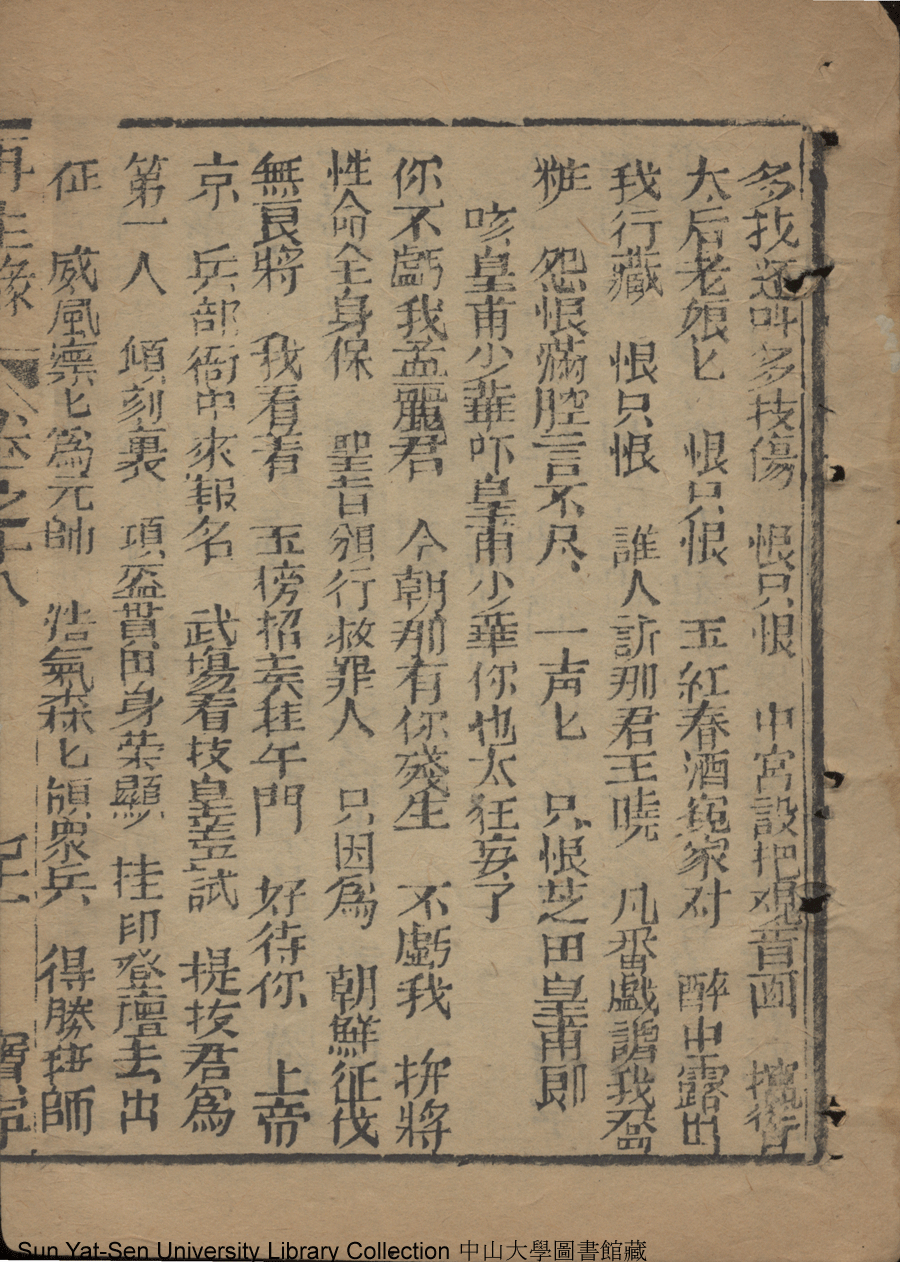 多技還叫多技傷　恨只恨　中宮設把观音画　擅
太后老娘匕　恨只恨　玉紅春酒冤家对　醉中露出
我行藏　恨只恨　誰人訴那君王曉　凡番戲謔我忍
粧　怨恨滿腔言不尽　一声匕　只恨芝田皇甫郎
咳皇甫少華吓皇甫少華你也太狂妄了
你不虧我孟麗君　今朝那有你殘生　不虧我　拚將
性命全身保　聖旨頒行救罪人　只因爲　朝鮮征伐
無良將　我看着　玉榜招矣挂午門　好待你　上帝
京　兵部衙中來報名　武場看技皇壼試　提抜君爲
第一人　傾刻裏　項盔貫田身荣顯　挂印登壇去出
征　威風凛匕爲元帥　浩氣森匕領衆兵　得勝班師
再生緣　卷之十八
Sun Yat-Sen University Library Collection 中山大學圖書館藏